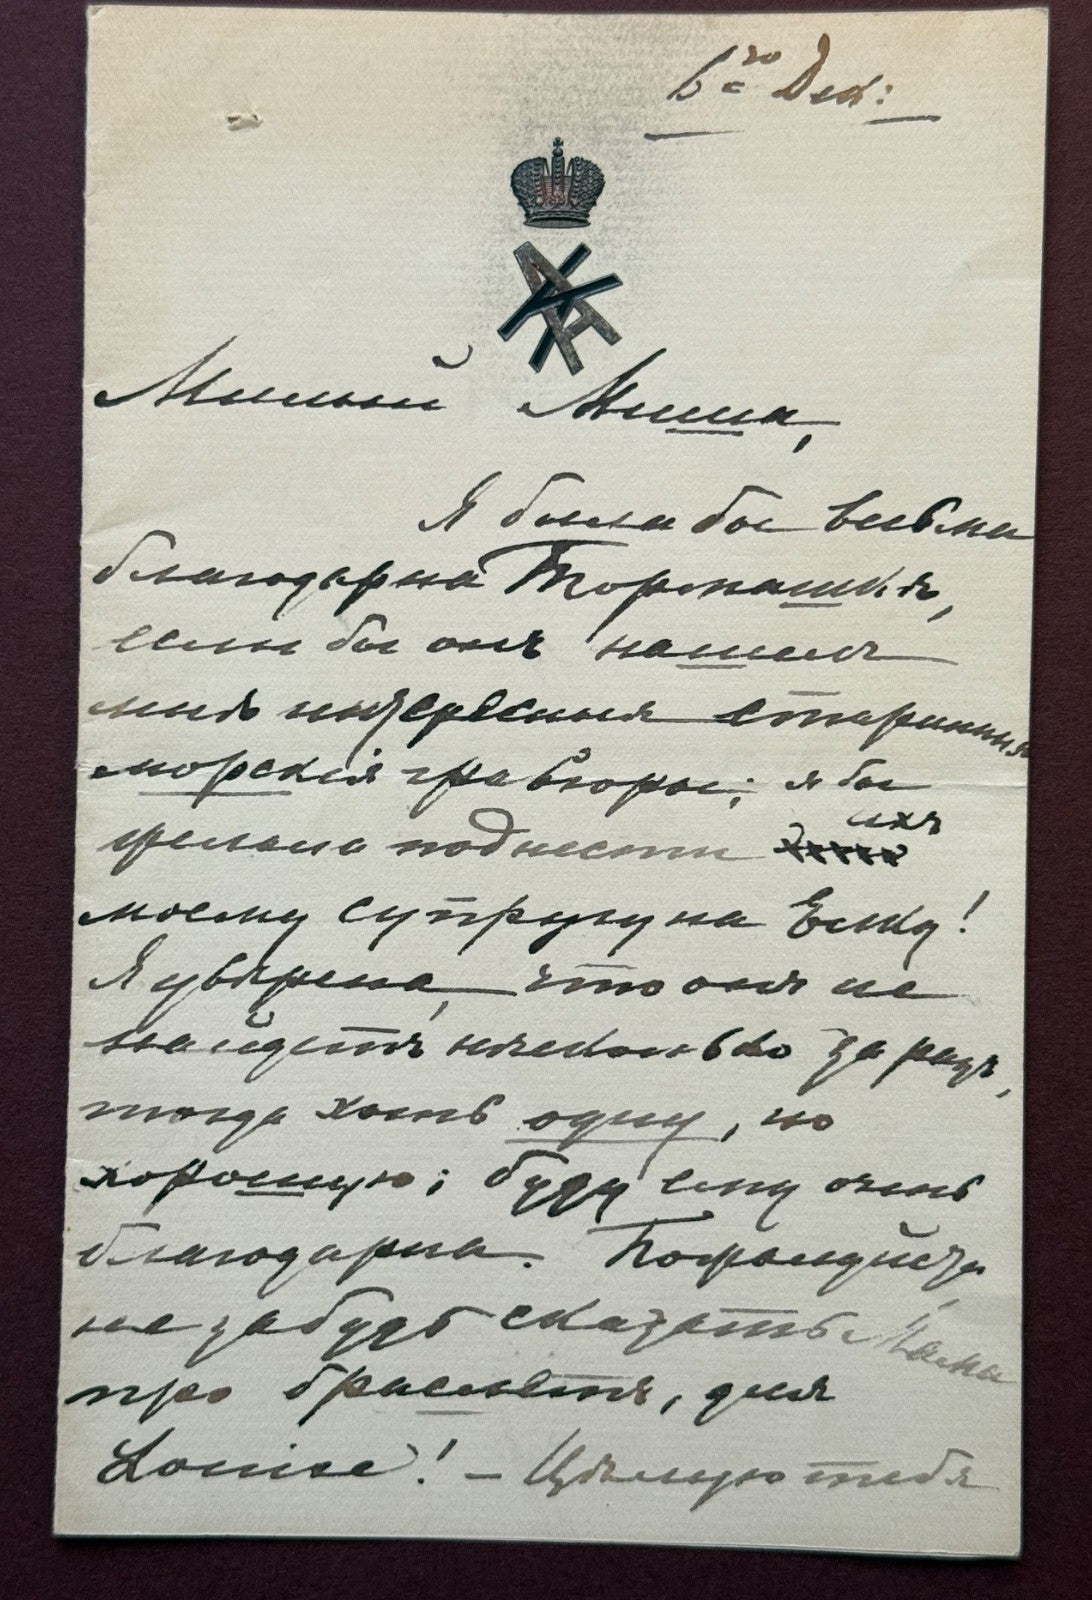 6=го Дек:
Милый Миша,
Я была бы весьма
благодарна Тормашкѣ,
если бы онъ нашелъ
мнѣ интересныя старинныя
морскія гравюры; я бы
ихъ
желала поднести
моему супругу на Елку!
Я увѣрена, что онъ не
найдетъ нѣсколько за разъ,
тогда хоть одну, но
хорошую; буду ему очень
благодарна. Пожалуйста
не забудь сказать Мама
про браслетъ, для
Louise! – Цѣлую тебя